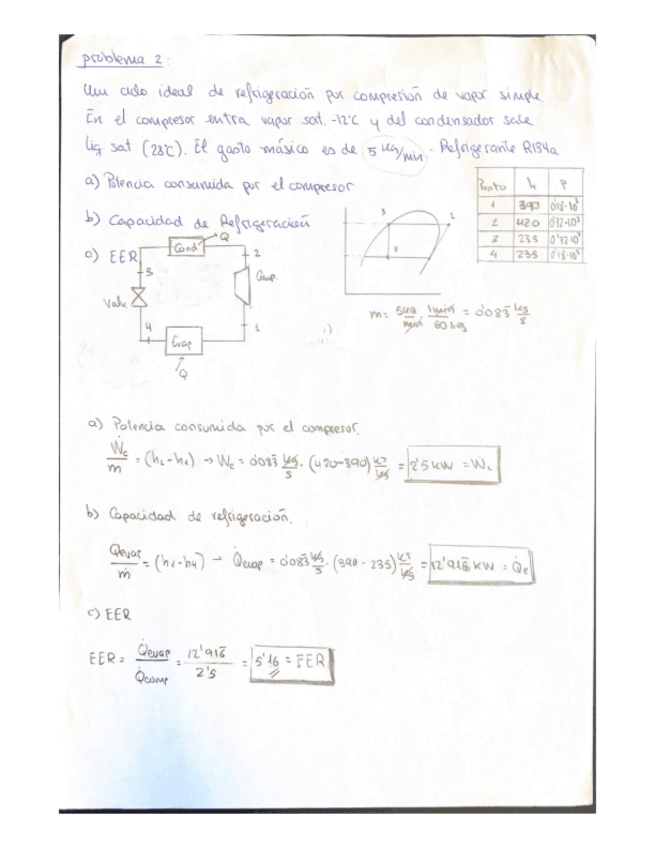 problema 2:
Un ciclo ideal de refrigeración por compresión de vapor simple
En el compresor entra vapor sat. -12°C y del condensador sale
liq sat (28°C). El gasto másico es de 5 kg/min. Refrigerante R134a
a) Potencia consumida por el compresor
b) Capacidad de Refrigeración
c) EER
Punto h P
1 390 0'18·10³
2 420 0'72·10³
3 235 0'72·10³
4 235 0'18·10³
Q
Cond
3 2
Valv. Comp.
4 1
Evap
Q
3 2
4
m = 5 kg/min · 1 min/60 seg = 0'083 kg/s
a) Potencia consumida por el compresor.
Ẇc/ṁ = (h2-h1) → Wc = 0'083 kg/s · (420-390) kJ/kg = 2'5 kW = Ẇc
b) Capacidad de refrigeración.
Q̇evap/ṁ = (h1-h4) → Q̇evap = 0'083 kg/s · (390-235) kJ/kg = 12'916 kW = Q̇e
c) EER
EER = Q̇evap/Q̇comp = 12'916/2'5 = 5'16 = EER